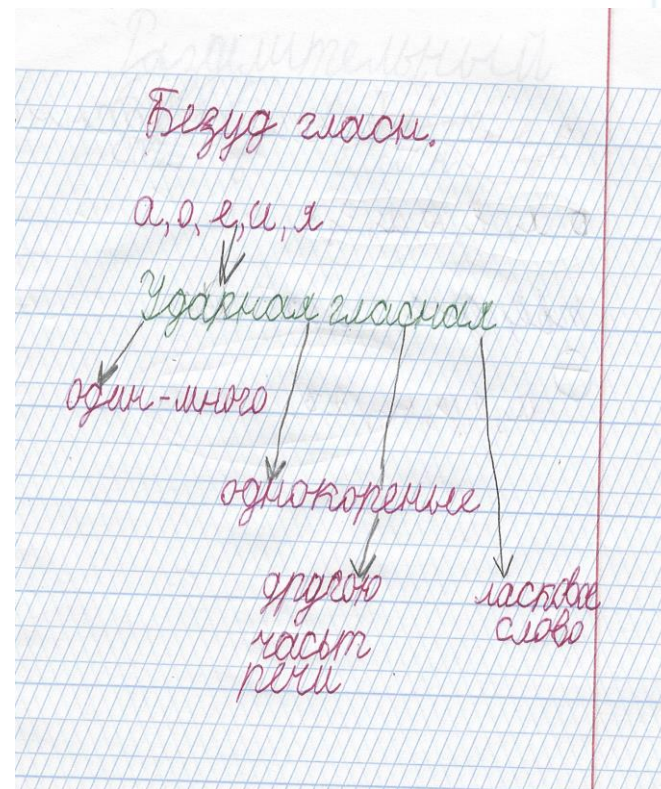 Разделительный
Безуд гласн.
а, о, е, и, я
Ударная гласная
один-много
однокореные
другою
часьт
речи
ласковое
слово